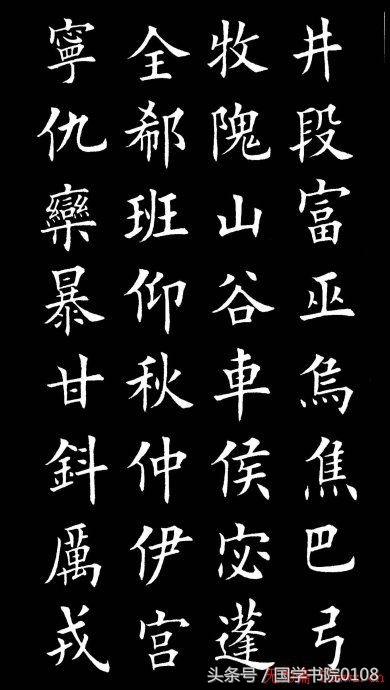 井段富巫烏焦巴弓
牧隗山谷車侯宓蓬
全郗班仰秋仲伊宮
寧仇欒暴甘鈄厲戎
头条号 / 国学书院0108